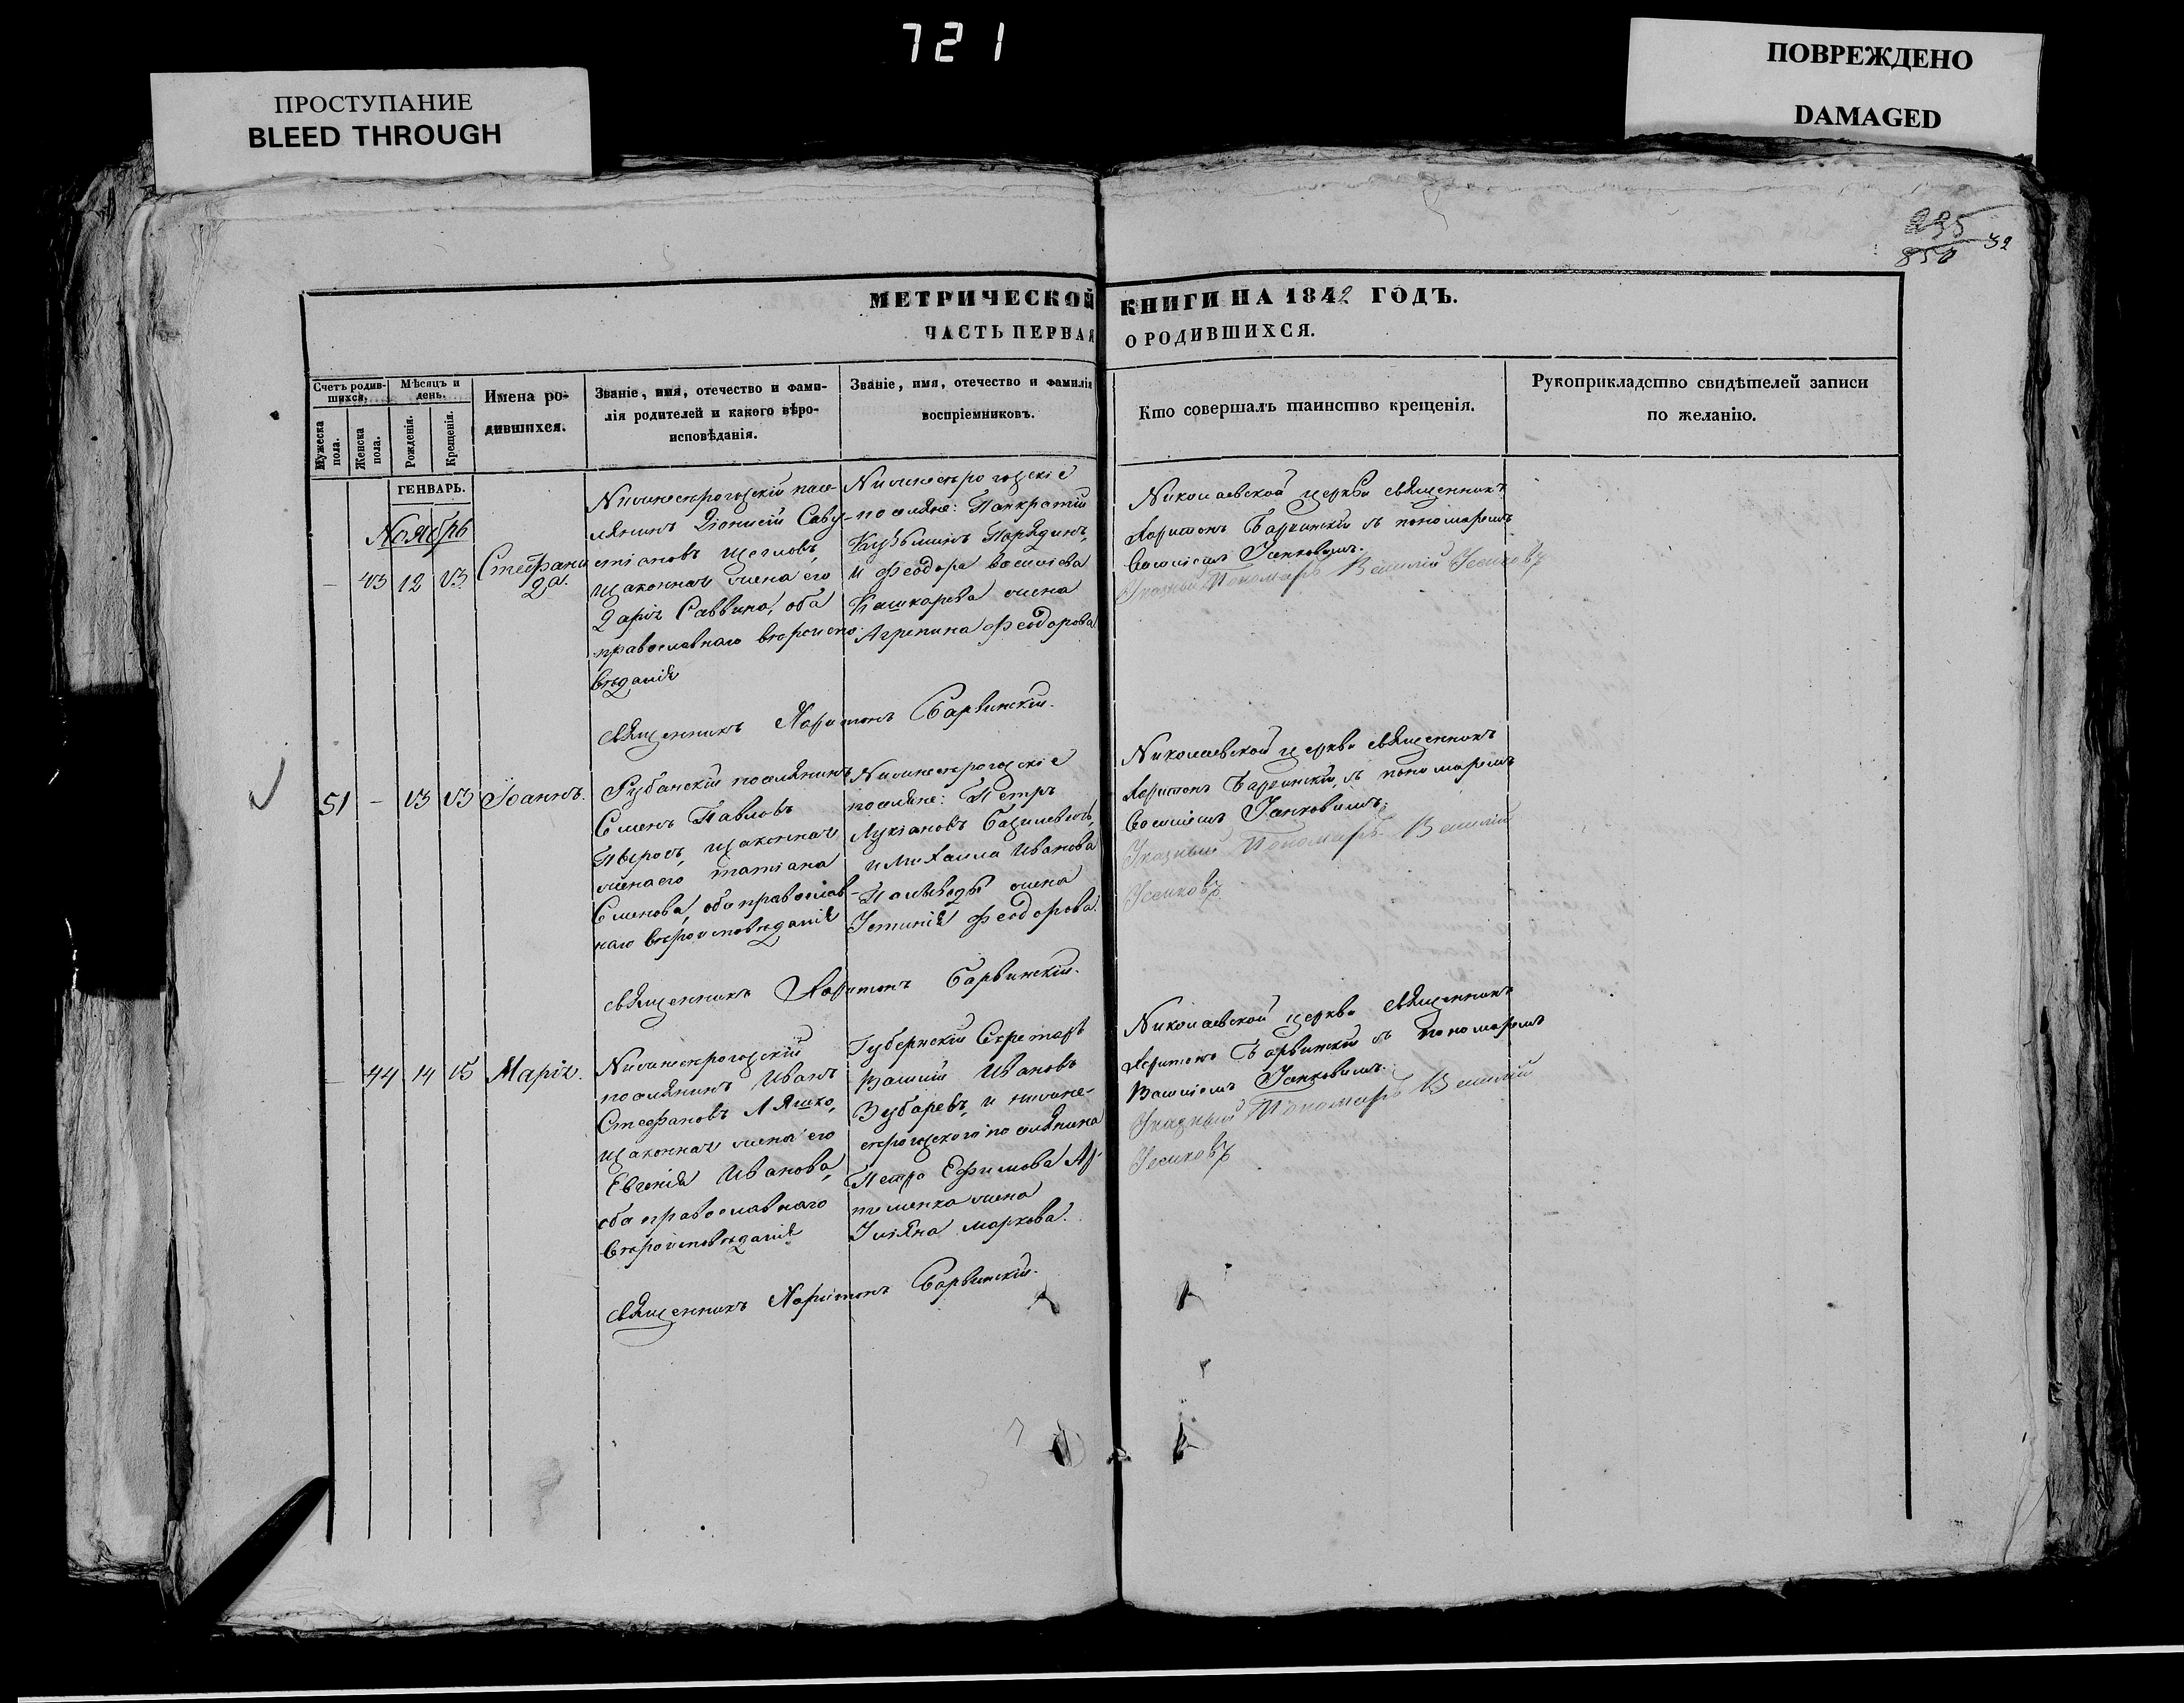 721
ПРОСТУПАНИЕ
BLEED THROUGH
ПОВРЕЖДЕНО
DAMAGED
295
856
32
МЕТРИЧЕСКОЙ КНИГИ НА 1842 ГОДЪ.
ЧАСТЬ ПЕРВАЯ О РОДИВШИХСЯ.
Счетъ родив-
шихся.
Мужеска
пола.
Женска
пола.
Мѣсяцъ и
день.
Рожденія.
Крещенія.
Имена ро-
дившихся.
Званіе, имя, отечество и фами-
лія родителей и какого вѣро-
исповѣданія.
Званіе, имя, отечество и фамилія
воспріемниковъ.
Кто совершалъ таинство крещенія.
Рукоприкладство свидѣтелей записи
по желанію.
ГЕНВАРЬ.
Ноябрь
– 43 12 13
Стефани
да.
Нижнесѣрогозскій посе-
лянинъ Діонисій Саву-
стіановъ Щегловъ,
законная жена его
Дарія Саввина, оба
православнаго вѣроиспо-
вѣданія
Нижнесѣрогозскіе
поселяне: Панкратій
Кузьминъ Порядинъ,
и Феодора Василіева
Кашкарева жена
Агрепина Феодорова
Николаевской церкви священникъ
Харитонъ Барвинскій съ пономаремъ
Василіемъ
Указный Пономарь Василій
священникъ Харитонъ Барвинскій.
51 – 13 13
Іоаннъ.
Рубанскій поселянинъ
Семенъ Павловъ
законная
жена его Татіана
Семенова, оба православ-
наго вѣроисповѣданія
Нижнесѣрогозскіе
поселяне: Петръ
Лукіановъ
и Михаила Иванова
жена
Устинія Феодорова.
Николаевской церкви священникъ
Харитонъ Барвинскій, съ пономаремъ
Василіемъ
Указный Пономарь Василій
священникъ Харитонъ Барвинскій.
– 44 14 15
Марія.
Нижнесѣрогозскій
поселянинъ Иванъ
Стефановъ Ляшко,
законная жена его
Евгенія Иванова,
оба православнаго
вѣроисповѣданія
Губернскій Секретарь
Василій Ивановъ
Зубаревъ, и нижне-
сѣрогозского поселянина
Петра Ефимова Ар-
теменка жена
Уліяна Маркова.
Николаевской церкви священникъ
Харитонъ Барвинскій съ пономаремъ
Василіемъ
Указный Пономарь Василій
священникъ Харитонъ Барвинскій.